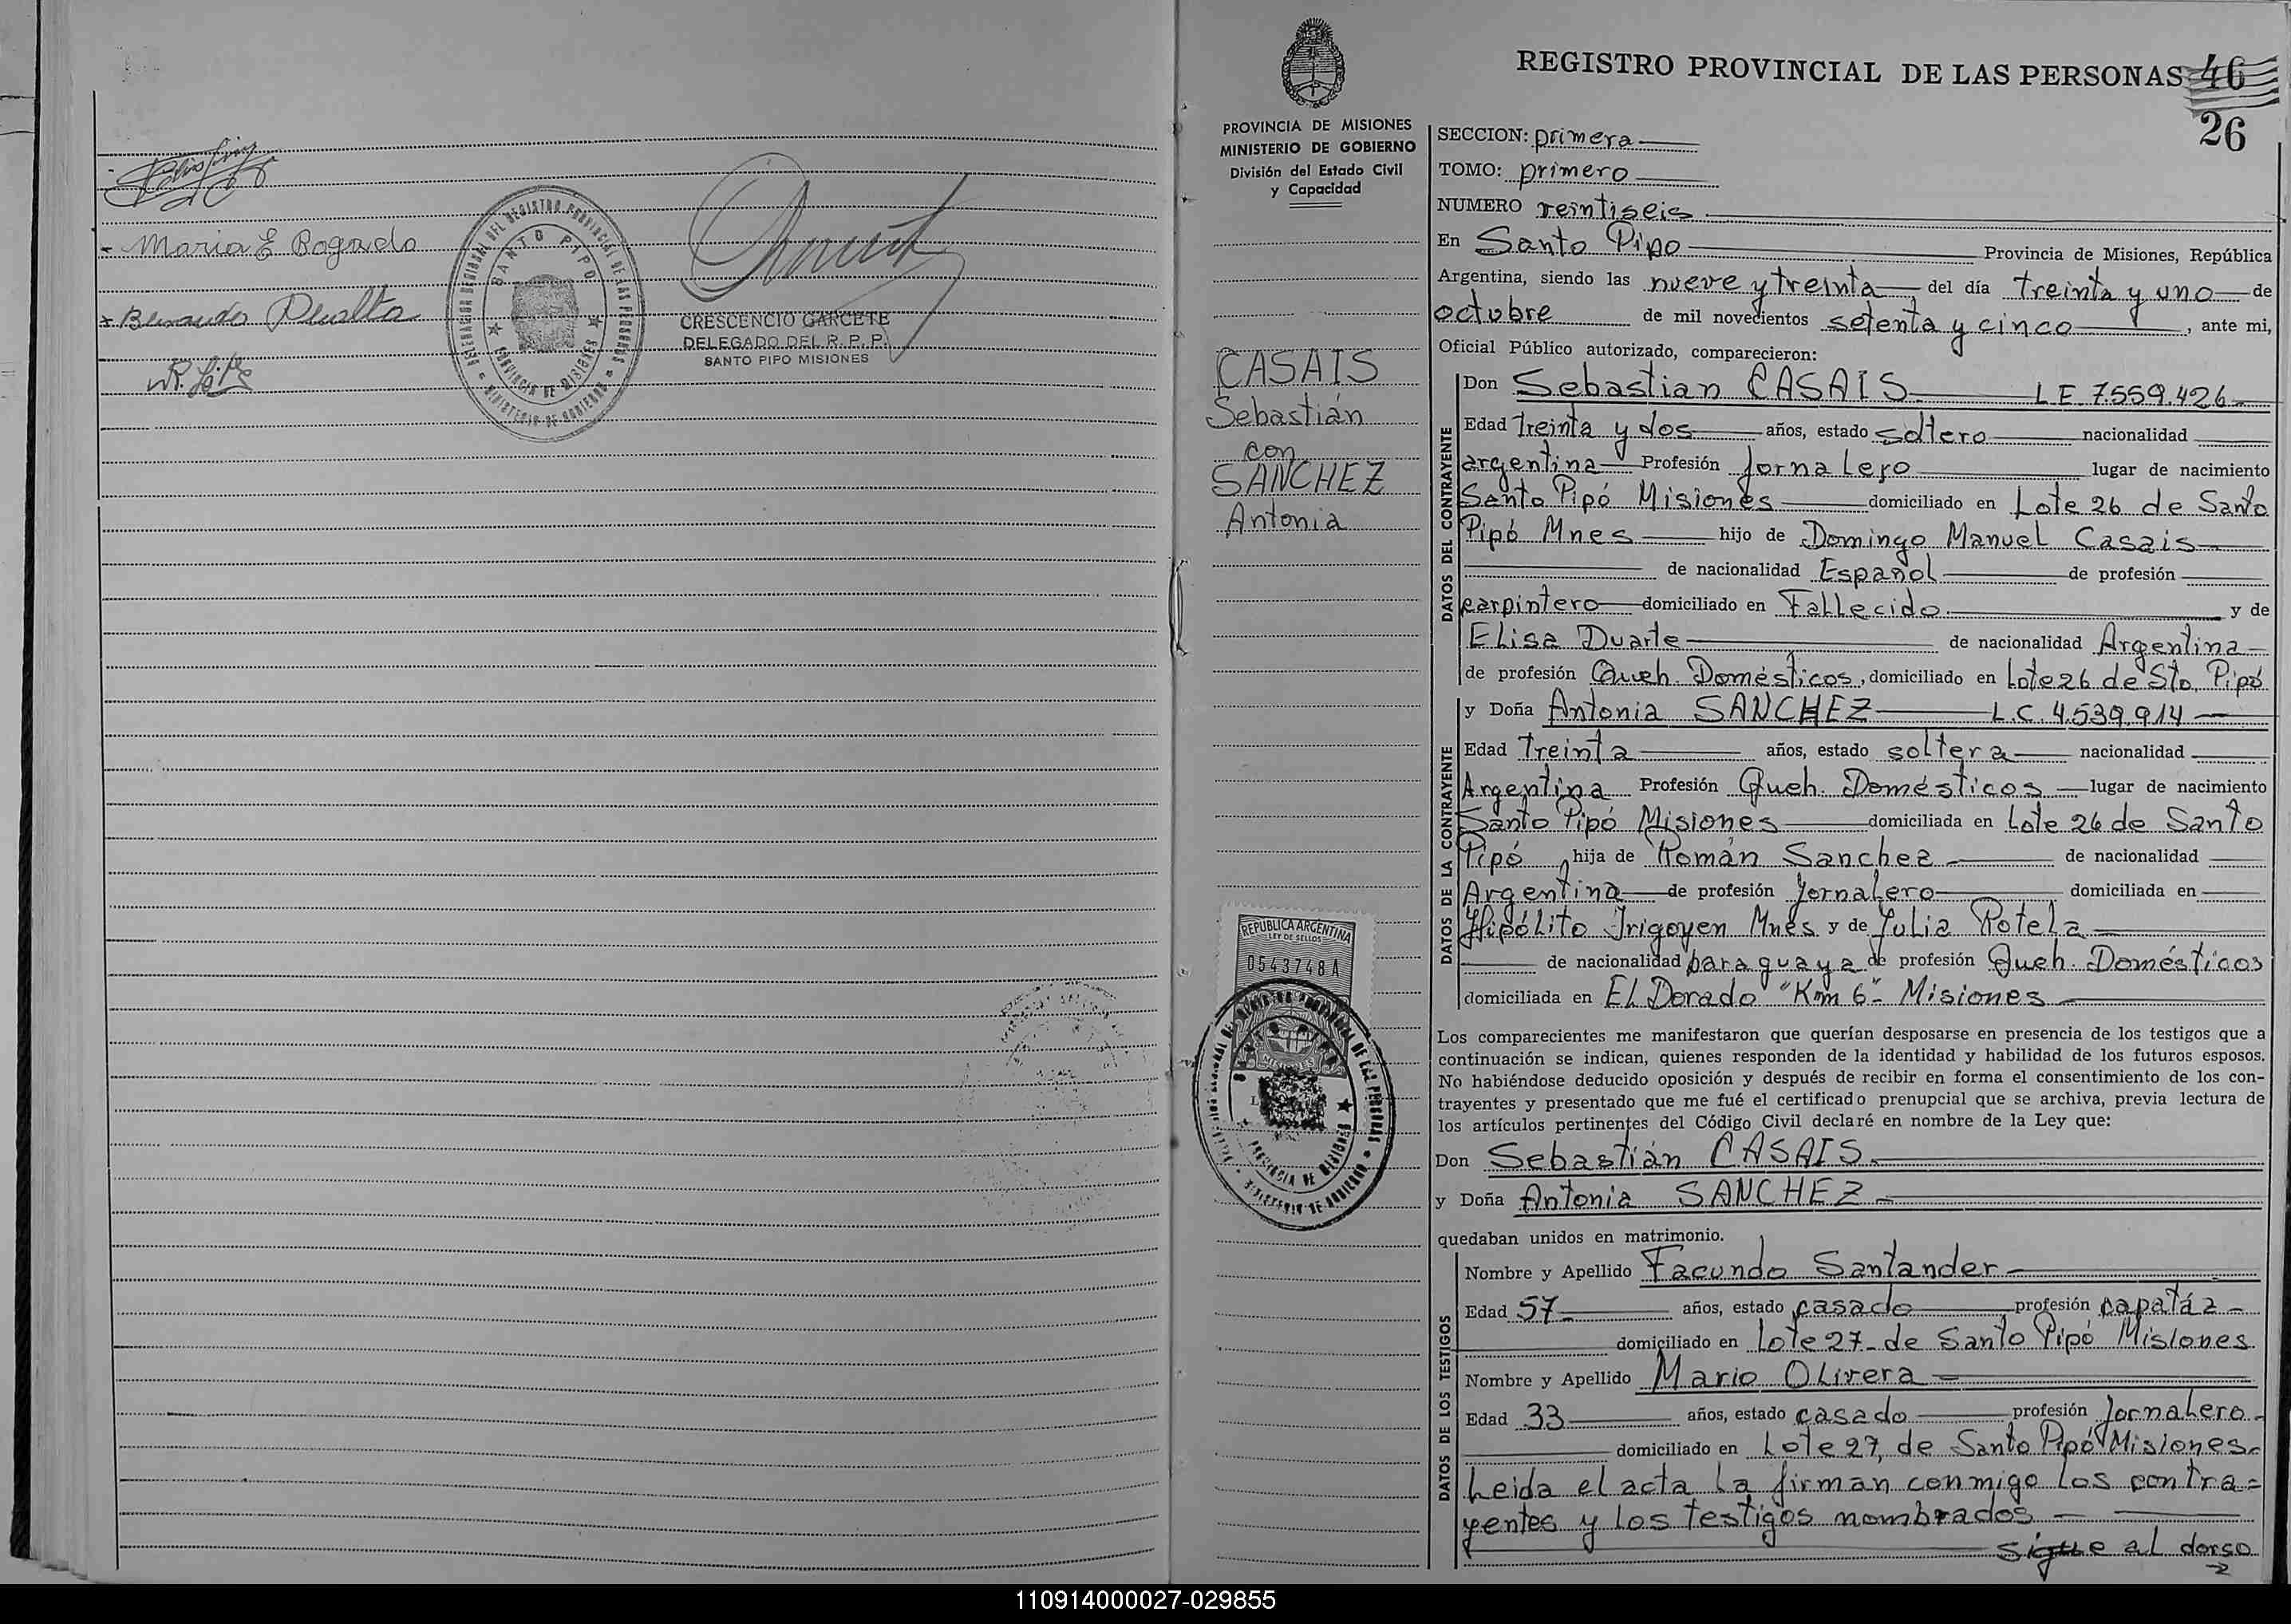 Maria E Bogado
Bernardo Peralta
DELEGACION REGIONAL DEL REGISTRO PROVINCIAL DE LAS PERSONAS
SANTO PIPO
PROVINCIA DE MISIONES
MINISTERIO DE GOBIERNO
CRESCENCIO GARCETE
DELEGADO DEL R. P. P.
SANTO PIPO MISIONES
PROVINCIA DE MISIONES
MINISTERIO DE GOBIERNO
División del Estado Civil
y Capacidad
CASAIS
Sebastián
con
SANCHEZ
Antonia
REPUBLICA ARGENTINA
LEY DE SELLOS
0543748A
MISIONES
PROVINCIA DE MISIONES
MINISTERIO DE GOBIERNO
REGISTRO PROVINCIAL DE LAS PERSONAS 46
26
SECCION: primera
TOMO: primero
NUMERO veintiseis
En Santo Pipo Provincia de Misiones, República
Argentina, siendo las nueve y treinta del día treinta y uno de
octubre de mil novecientos setenta y cinco, ante mi,
Oficial Público autorizado, comparecieron:
DATOS DEL CONTRAYENTE
Don Sebastian CASAIS LE 7.559.426
Edad treinta y dos años, estado soltero nacionalidad
argentina Profesión Jornalero lugar de nacimiento
Santo Pipó Misiones domiciliado en Lote 26 de Santo
Pipó Mnes hijo de Domingo Manuel Casais
de nacionalidad Español de profesión
carpintero domiciliado en Fallecido y de
Elisa Duarte de nacionalidad Argentina
de profesión Queh. Domésticos, domiciliado en Lote 26 de Sto. Pipó
DATOS DE LA CONTRAYENTE
y Doña Antonia SANCHEZ L.C. 4.539.914
Edad Treinta años, estado soltera nacionalidad
Argentina Profesión Queh. Domésticos lugar de nacimiento
Santo Pipó Misiones domiciliada en Lote 26 de Santo
Pipó, hija de Román Sanchez de nacionalidad
Argentina de profesión Jornalero domiciliada en
Hipólito Irigoyen Mnes y de Julia Rotela
de nacionalidad paraguaya de profesión Queh. Domésticos
domiciliada en El Dorado "Km 6" Misiones
Los comparecientes me manifestaron que querían desposarse en presencia de los testigos que a
continuación se indican, quienes responden de la identidad y habilidad de los futuros esposos.
No habiéndose deducido oposición y después de recibir en forma el consentimiento de los con-
trayentes y presentado que me fué el certificado prenupcial que se archiva, previa lectura de
los artículos pertinentes del Código Civil declaré en nombre de la Ley que:
Don Sebastián CASAIS
y Doña Antonia SANCHEZ
quedaban unidos en matrimonio.
DATOS DE LOS TESTIGOS
Nombre y Apellido Facundo Santander
Edad 57 años, estado casado profesión capatáz
domiciliado en Lote 27 de Santo Pipó Misiones
Nombre y Apellido Mario Olivera
Edad 33 años, estado casado profesión Jornalero
domiciliado en Lote 27, de Santo Pipó Misiones
Leida el acta la firman conmigo los contra=
yentes y los testigos nombrados
sigue al dorso
110914000027-029855